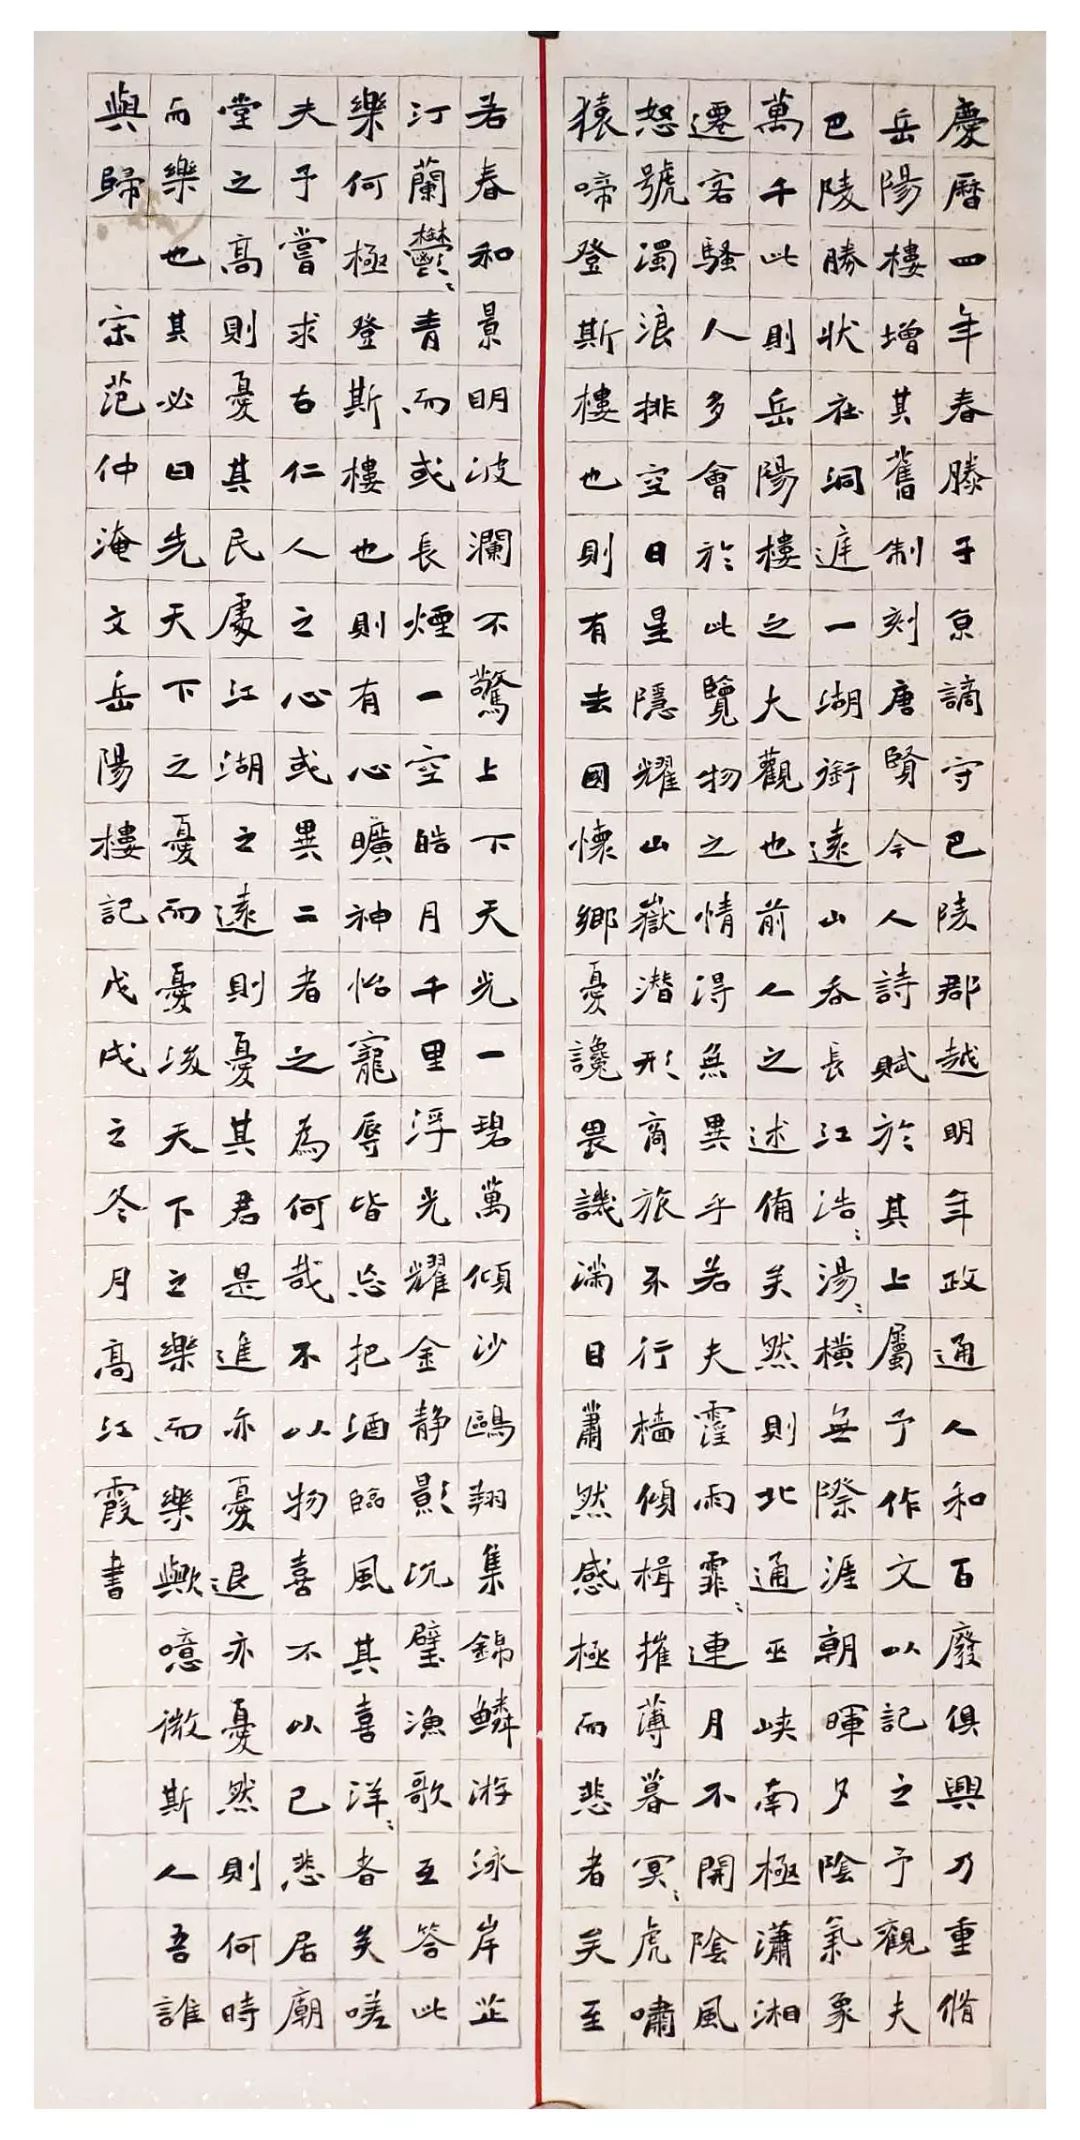 慶曆四年春滕子京謫守巴陵郡越明年政通人和百廢俱興乃重脩
岳陽樓增其舊制刻唐賢今人詩賦於其上屬予作文以記之予觀夫
巴陵勝狀在洞庭一湖銜遠山吞長江浩〻湯〻橫無際涯朝暉夕陰氣象
萬千此則岳陽樓之大觀也前人之述備矣然則北通巫峽南極瀟湘
遷客騷人多會於此覽物之情得無異乎若夫霪雨霏〻連月不開陰風
怒號濁浪排空日星隱耀山嶽潛形商旅不行檣傾楫摧薄暮冥〻虎嘯
猿啼登斯樓也則有去國懷鄉憂讒畏譏滿目蕭然感極而悲者矣至
若春和景明波瀾不驚上下天光一碧萬傾沙鷗翔集錦鱗游泳岸芷
汀蘭鬱〻青而或長煙一空皓月千里浮光耀金静影沉璧漁歌互答此
樂何極登斯樓也則有心曠神怡寵辱皆忘把酒臨風其喜洋〻者矣嗟
夫予嘗求古仁人之心或異二者之為何哉不以物喜不以己悲居廟
堂之高則憂其民處江湖之遠則憂其君是進亦憂退亦憂然則何時
而樂也其必曰先天下之憂而憂後天下之樂而樂歟噫微斯人吾誰
與歸 宋范仲淹文岳陽樓記戊戌之冬月高江霞書